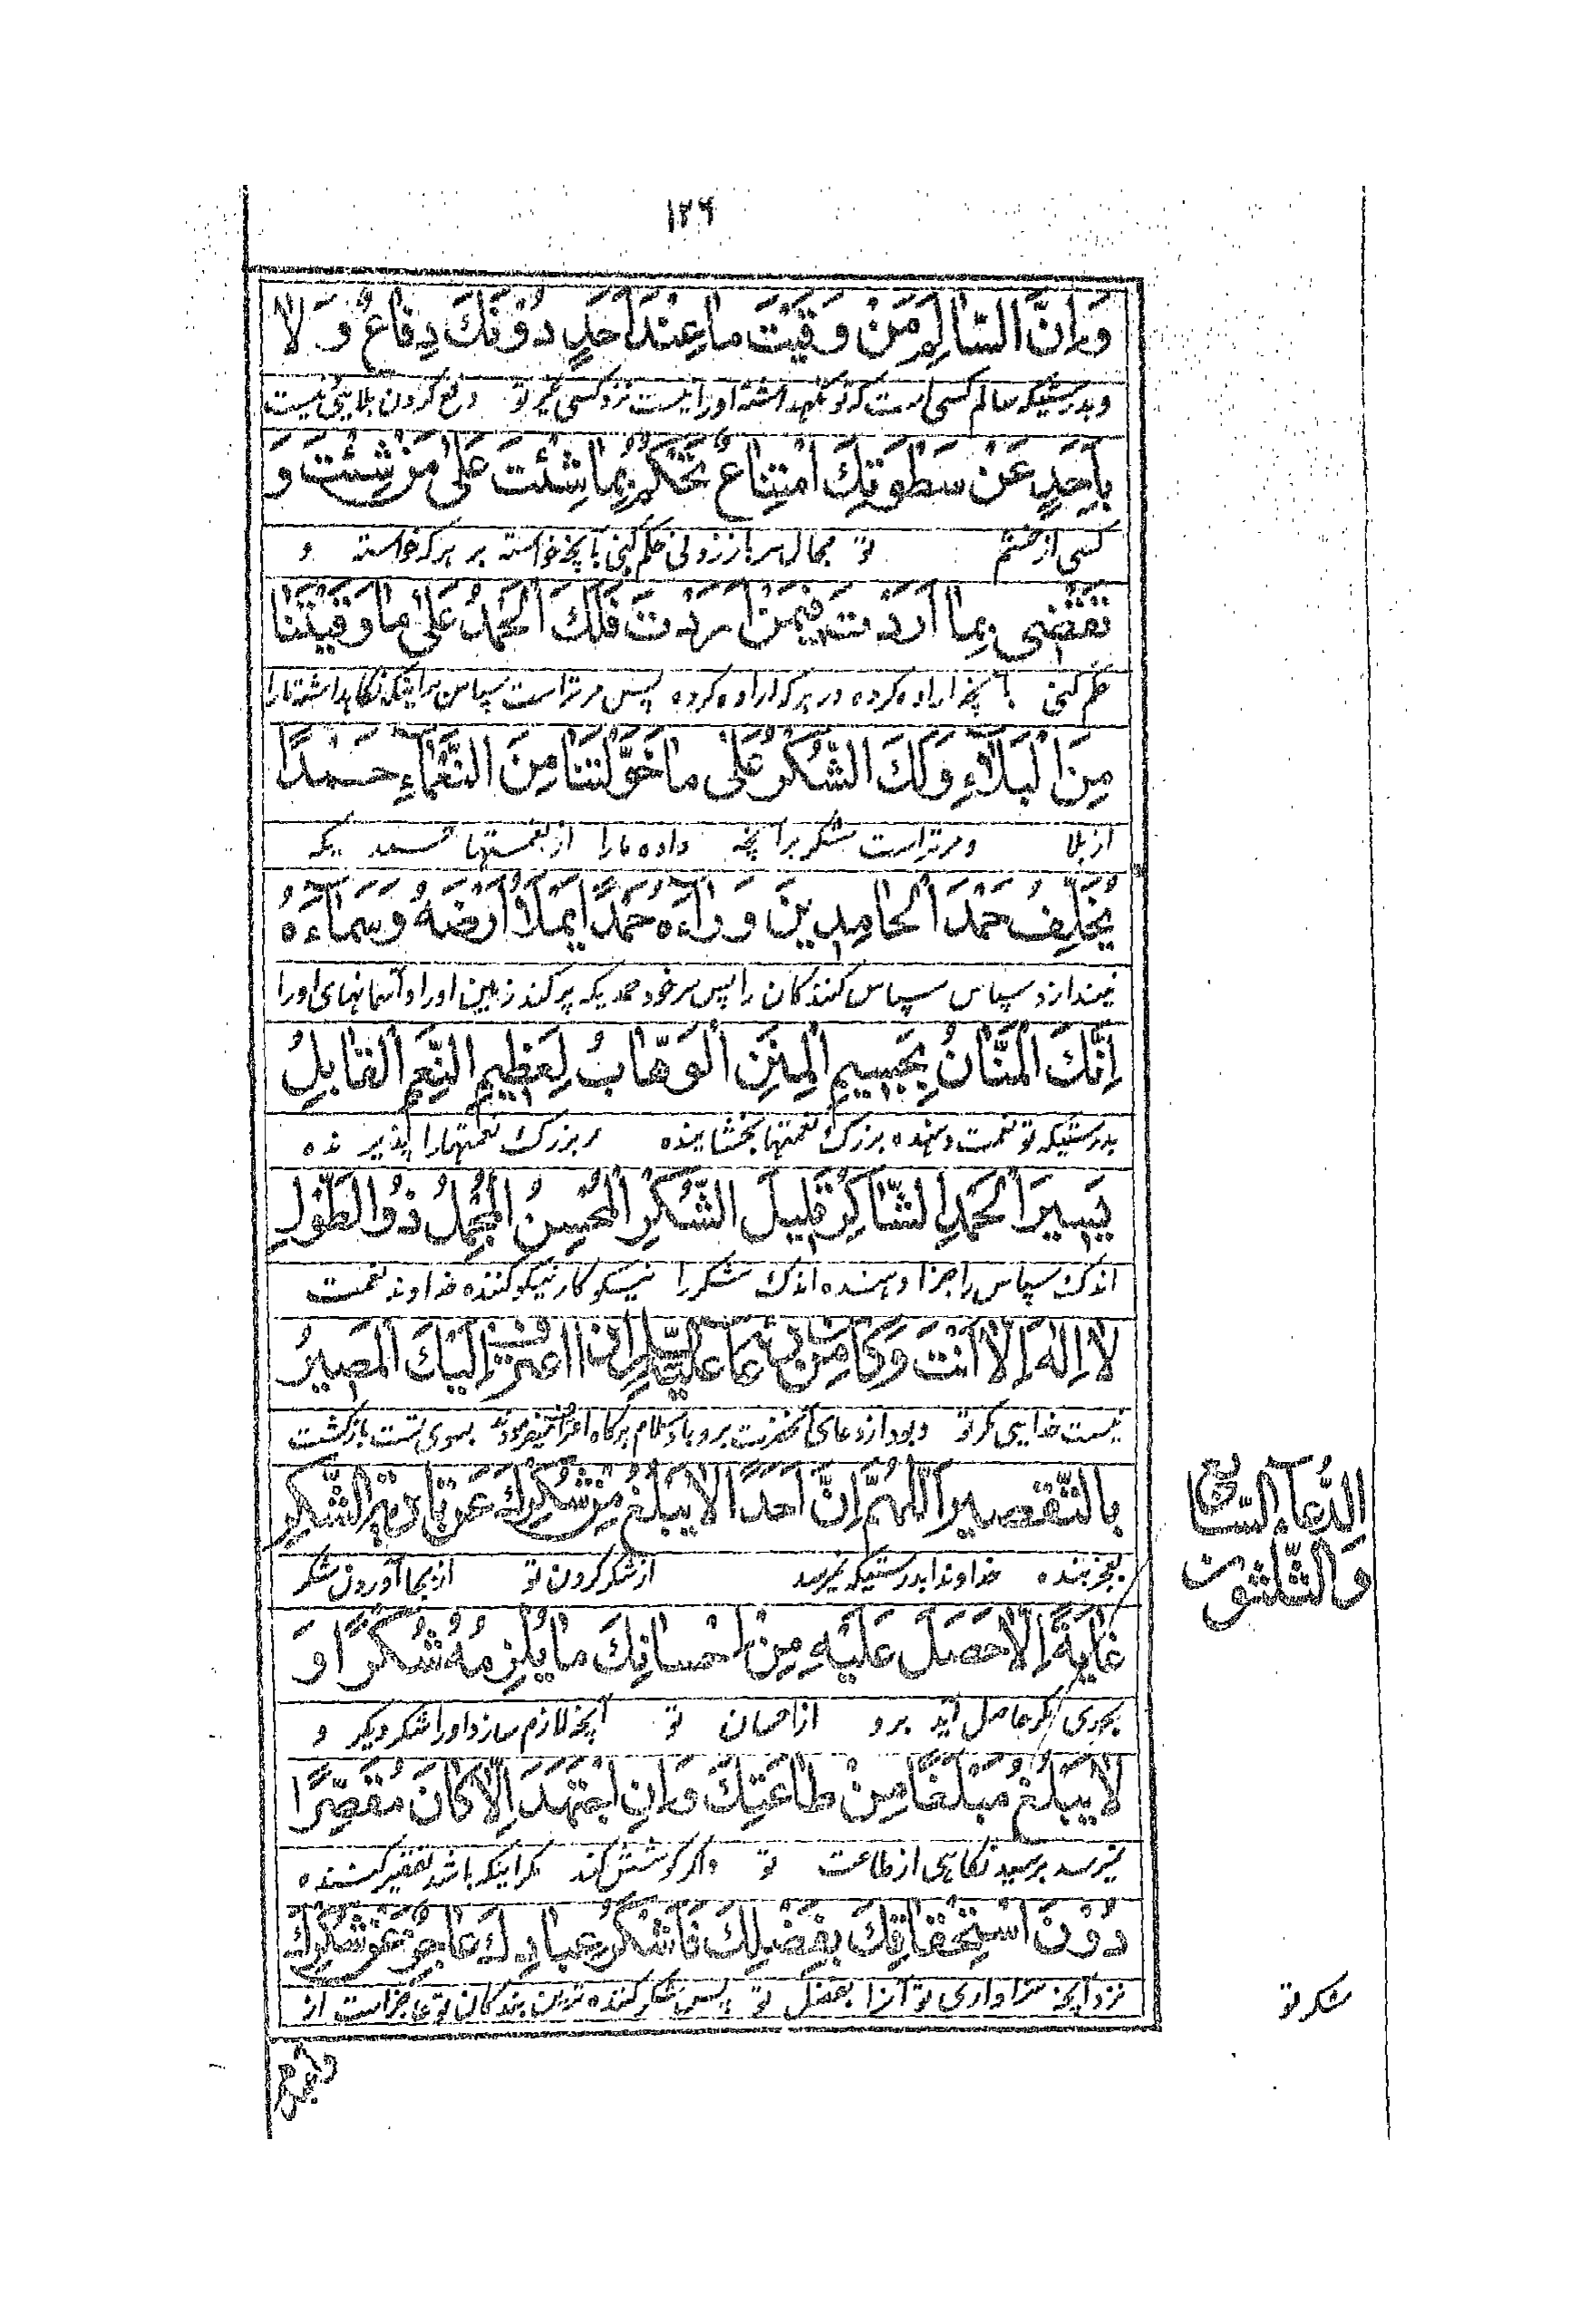 ۱۲۶
وَاِنَّ السّٰالِمَ مَنْ وَقَيْتَ مٰا عِنْدَ اَحَدٍ دُوْنَكَ دِفٰاعٌ وَ لٰا
وبدرستیکه سالم کسی است که تو نگهداشتهٔ او را نیست نزد کسی غیر تو دفع کردن بلایی نیست
بِاَحَدٍ عَنْ سَطْوَتِكَ امْتِنٰاعٌ تَحْكُمُ بِمٰا شِئْتَ عَلٰى مَنْ شِئْتَ وَ
کسی از خشم تو مجال سر باز زدن حکم کنی بانچه خواسته بر هر که خواسته و
تَقْضٖى بِمٰا اَرَدْتَ فِيْمَنْ اَرَدْتَ فَلَكَ الْحَمْدُ عَلٰى مٰا وَقَيْتَنٰا
حکم کنی بانچه اراده کرده در هر که اراده کرده پس مر تراست سپاس بر اینکه نگاهداشته ما را
مِنَ الْبَلَآءِ وَلَكَ الشُّكْرُ عَلٰى مٰا خَوَّلْتَنٰا مِنَ النَّعْمٰآءِ حَمْدًا
از بلا و مر تراست شکر بر آنچه داده ما را از نعمتها حمد یکه
يُخَلِّفُ حَمْدَ الْحٰامِدِيْنَ وَرٰآءَهُ حَمْدًا يَمْلَاُ اَرْضَهُ وَسَمٰآءَهُ
بیندازد سپاس سپاس کنندکان را پس سر خود حمدیکه پر کند زمین او را و آسمانهای او را
اِنَّكَ الْمَنّٰانُ بِجَسِيْمِ الْمِنَنِ الْوَهّٰابُ لِعَظِيْمِ النِّعَمِ الْقٰابِلُ
بدرستیکه تو نعمت دهنده بزرک نعمتها بخشاینده مر بزرک نعمتها را پذیرنده
يَسِيْرَ الْحَمْدِ الشّٰاكِرُ قَلِيْلَ الشُّكْرِ الْمُحْسِنُ الْمُجْمِلُ ذُوْ الطَّوْلِ
اندک سپاس را جزا دهنده اندک شکر را نیکو کار نیکو کننده خداوند نعمت
لٰا اِلٰهَ اِلّٰا اَنْتَ وَكٰانَ مِنْ دُعٰآئِهِ عَلَيْهِ السَّلٰامُ اِذَا اعْتَرَفَ اِلَيْكَ الْمَصِيْرُ
نیست خدایی مگر تو و بود از دعای آنحضرت برو باد سلام هرگاه اعتراف میفرمود بسوی تست بازگشت
بِالتَّقْصِيْرِ اَللّٰهُمَّ اِنَّ اَحَدًا لٰا يَبْلُغُ مِنْ شُكْرِكَ عَنْ تَاْدِيَةِ الشُّكْرِ
بعجز بنده خداوندا بدرستیکه نمیرسد از شکر کردن تو از بجا آوردن شکر
الدُّعٰآءُ السّٰابِعُ
وَالثَّلٰثُوْنَ
غٰايَةً اِلّٰا حَصَلَ عَلَيْهِ مِنْ اِحْسٰانِكَ مٰا يُلْزِمُهُ شُكْرًا وَ
بحدی مگر حاصل آید برو از احسان تو آنچه لازم سازد او را شکر دیگر و
لٰا يَبْلُغُ مَبْلَغًا مِنْ طٰاعَتِكَ وَاِنِ اجْتَهَدَ اِلّٰا كٰانَ مُقَصِّرًا
نمیرسد برسیدنگاهی از طاعت تو و اگر کوشش کند مگر اینکه باشد تقصیر کننده
دُوْنَ اسْتِحْقٰاقِكَ بِفَضْلِكَ فَاَشْكَرُ عِبٰادِكَ عٰاجِزٌ عَنْ شُكْرِكَ
نزد آنچه سزاواری تو آنرا بفضل تو پس شکر کننده ترین بندکان تو عاجز است از
شکر تو